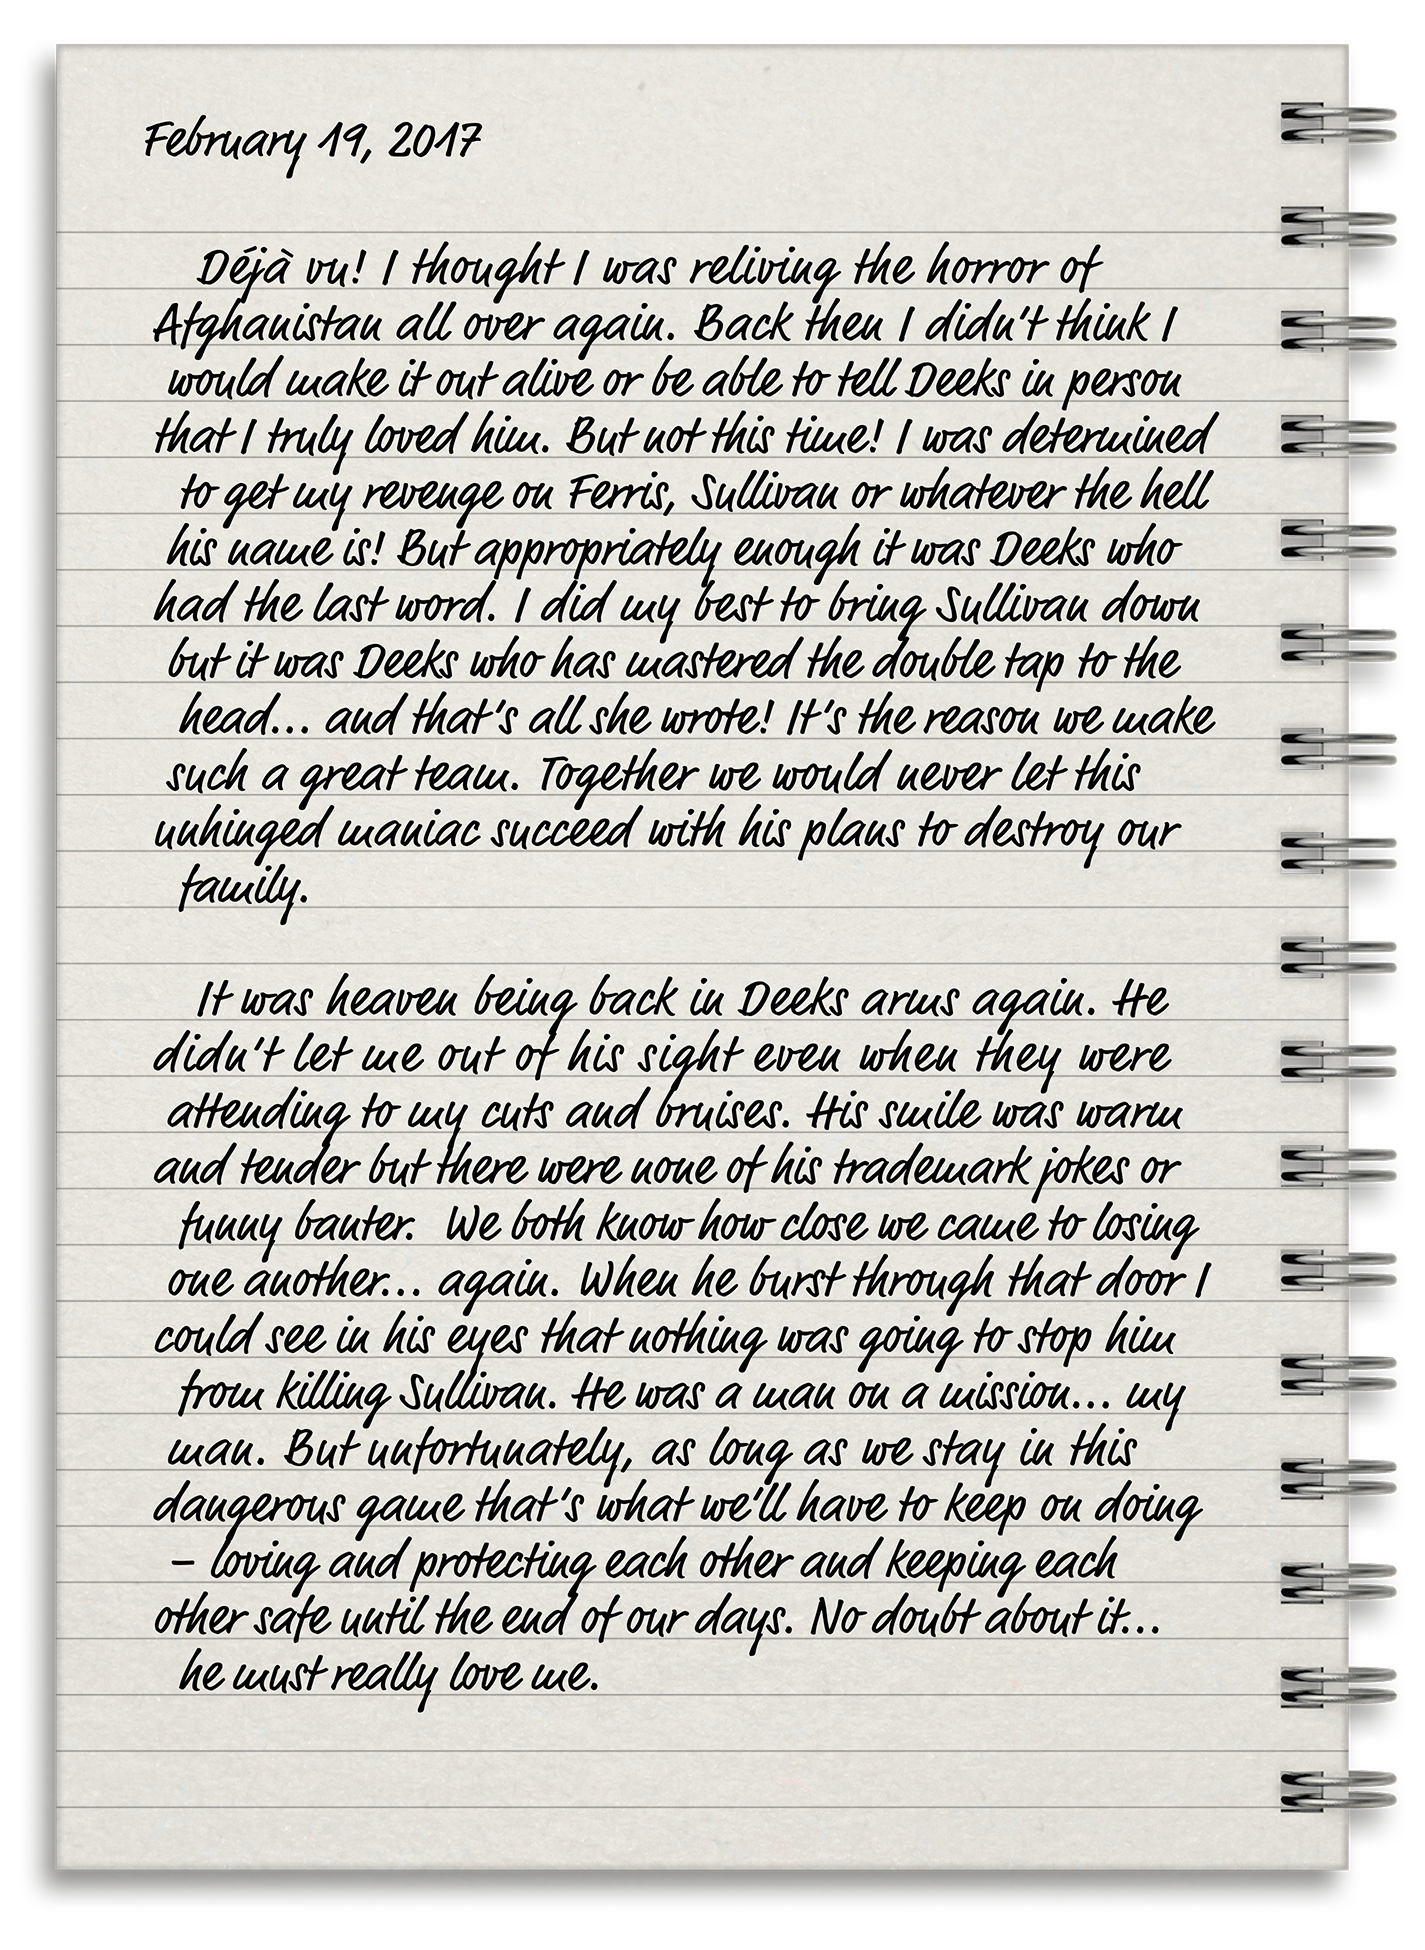 February 19, 2017
Déjà vu! I thought I was reliving the horror of
Afghanistan all over again. Back then I didn't think I
would make it out alive or be able to tell Deeks in person
that I truly loved him. But not this time! I was determined
to get my revenge on Ferris, Sullivan or whatever the hell
his name is! But appropriately enough it was Deeks who
had the last word. I did my best to bring Sullivan down
but it was Deeks who has mastered the double tap to the
head... and that's all she wrote! It's the reason we make
such a great team. Together we would never let this
unhinged maniac succeed with his plans to destroy our
family.
It was heaven being back in Deeks arms again. He
didn't let me out of his sight even when they were
attending to my cuts and bruises. His smile was warm
and tender but there were none of his trademark jokes or
funny banter.  We both know how close we came to losing
one another... again. When he burst through that door I
could see in his eyes that nothing was going to stop him
from killing Sullivan. He was a man on a mission... my
man. But unfortunately, as long as we stay in this
dangerous game that's what we'll have to keep on doing
– loving and protecting each other and keeping each
other safe until the end of our days. No doubt about it...
he must really love me.